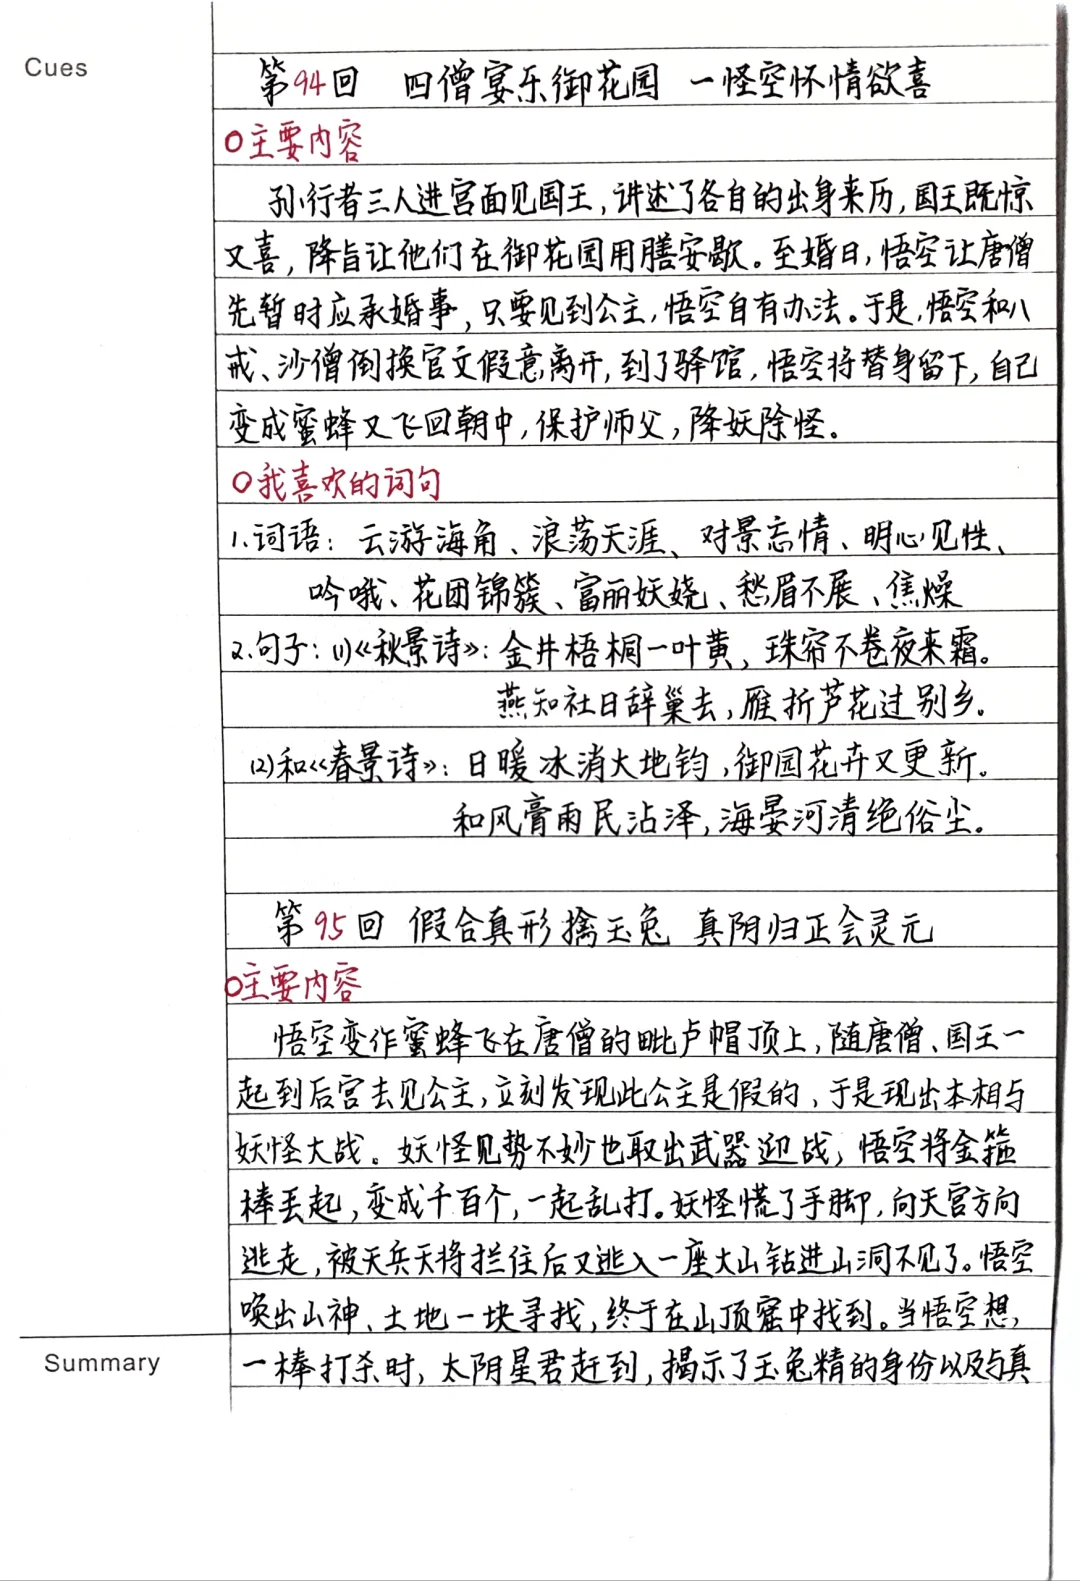 Cues
第94回 四僧宴乐御花园 一怪空怀情欲喜
○主要内容
孙行者三人进宫面见国王，讲述了各自的出身来历，国王既惊
又喜，降旨让他们在御花园用膳安歇。至婚日，悟空让唐僧
先暂时应承婚事，只要见到公主，悟空自有办法。于是，悟空和八
戒、沙僧倒换官文假意离开，到了驿馆，悟空将替身留下，自己
变成蜜蜂又飞回朝中，保护师父，降妖除怪。
○我喜欢的词句
1.词语：云游海角、浪荡天涯、对景忘情、明心见性、
吟哦、花团锦簇、富丽妖娆、愁眉不展、焦燥
2.句子：(1)《秋景诗》：金井梧桐一叶黄，珠帘不卷夜来霜。
燕知社日辞巢去，雁折芦花过别乡。
(2)和《春景诗》：日暖冰消大地钧，御园花卉又更新。
和风膏雨民沾泽，海晏河清绝俗尘。
第95回 假合真形擒玉兔 真阴归正会灵元
○主要内容
悟空变作蜜蜂飞在唐僧的毗卢帽顶上，随唐僧、国王一
起到后宫去见公主，立刻发现此公主是假的，于是现出本相与
妖怪大战。妖怪见势不妙也取出武器迎战，悟空将金箍
棒丢起，变成千百个，一起乱打。妖怪慌了手脚，向天宫方向
逃走，被天兵天将拦住后又逃入一座大山钻进山洞不见了。悟空
唤出山神、土地一块寻找，终于在山顶窟中找到。当悟空想，
一棒打杀时，太阴星君赶到，揭示了玉兔精的身份以及与真
Summary